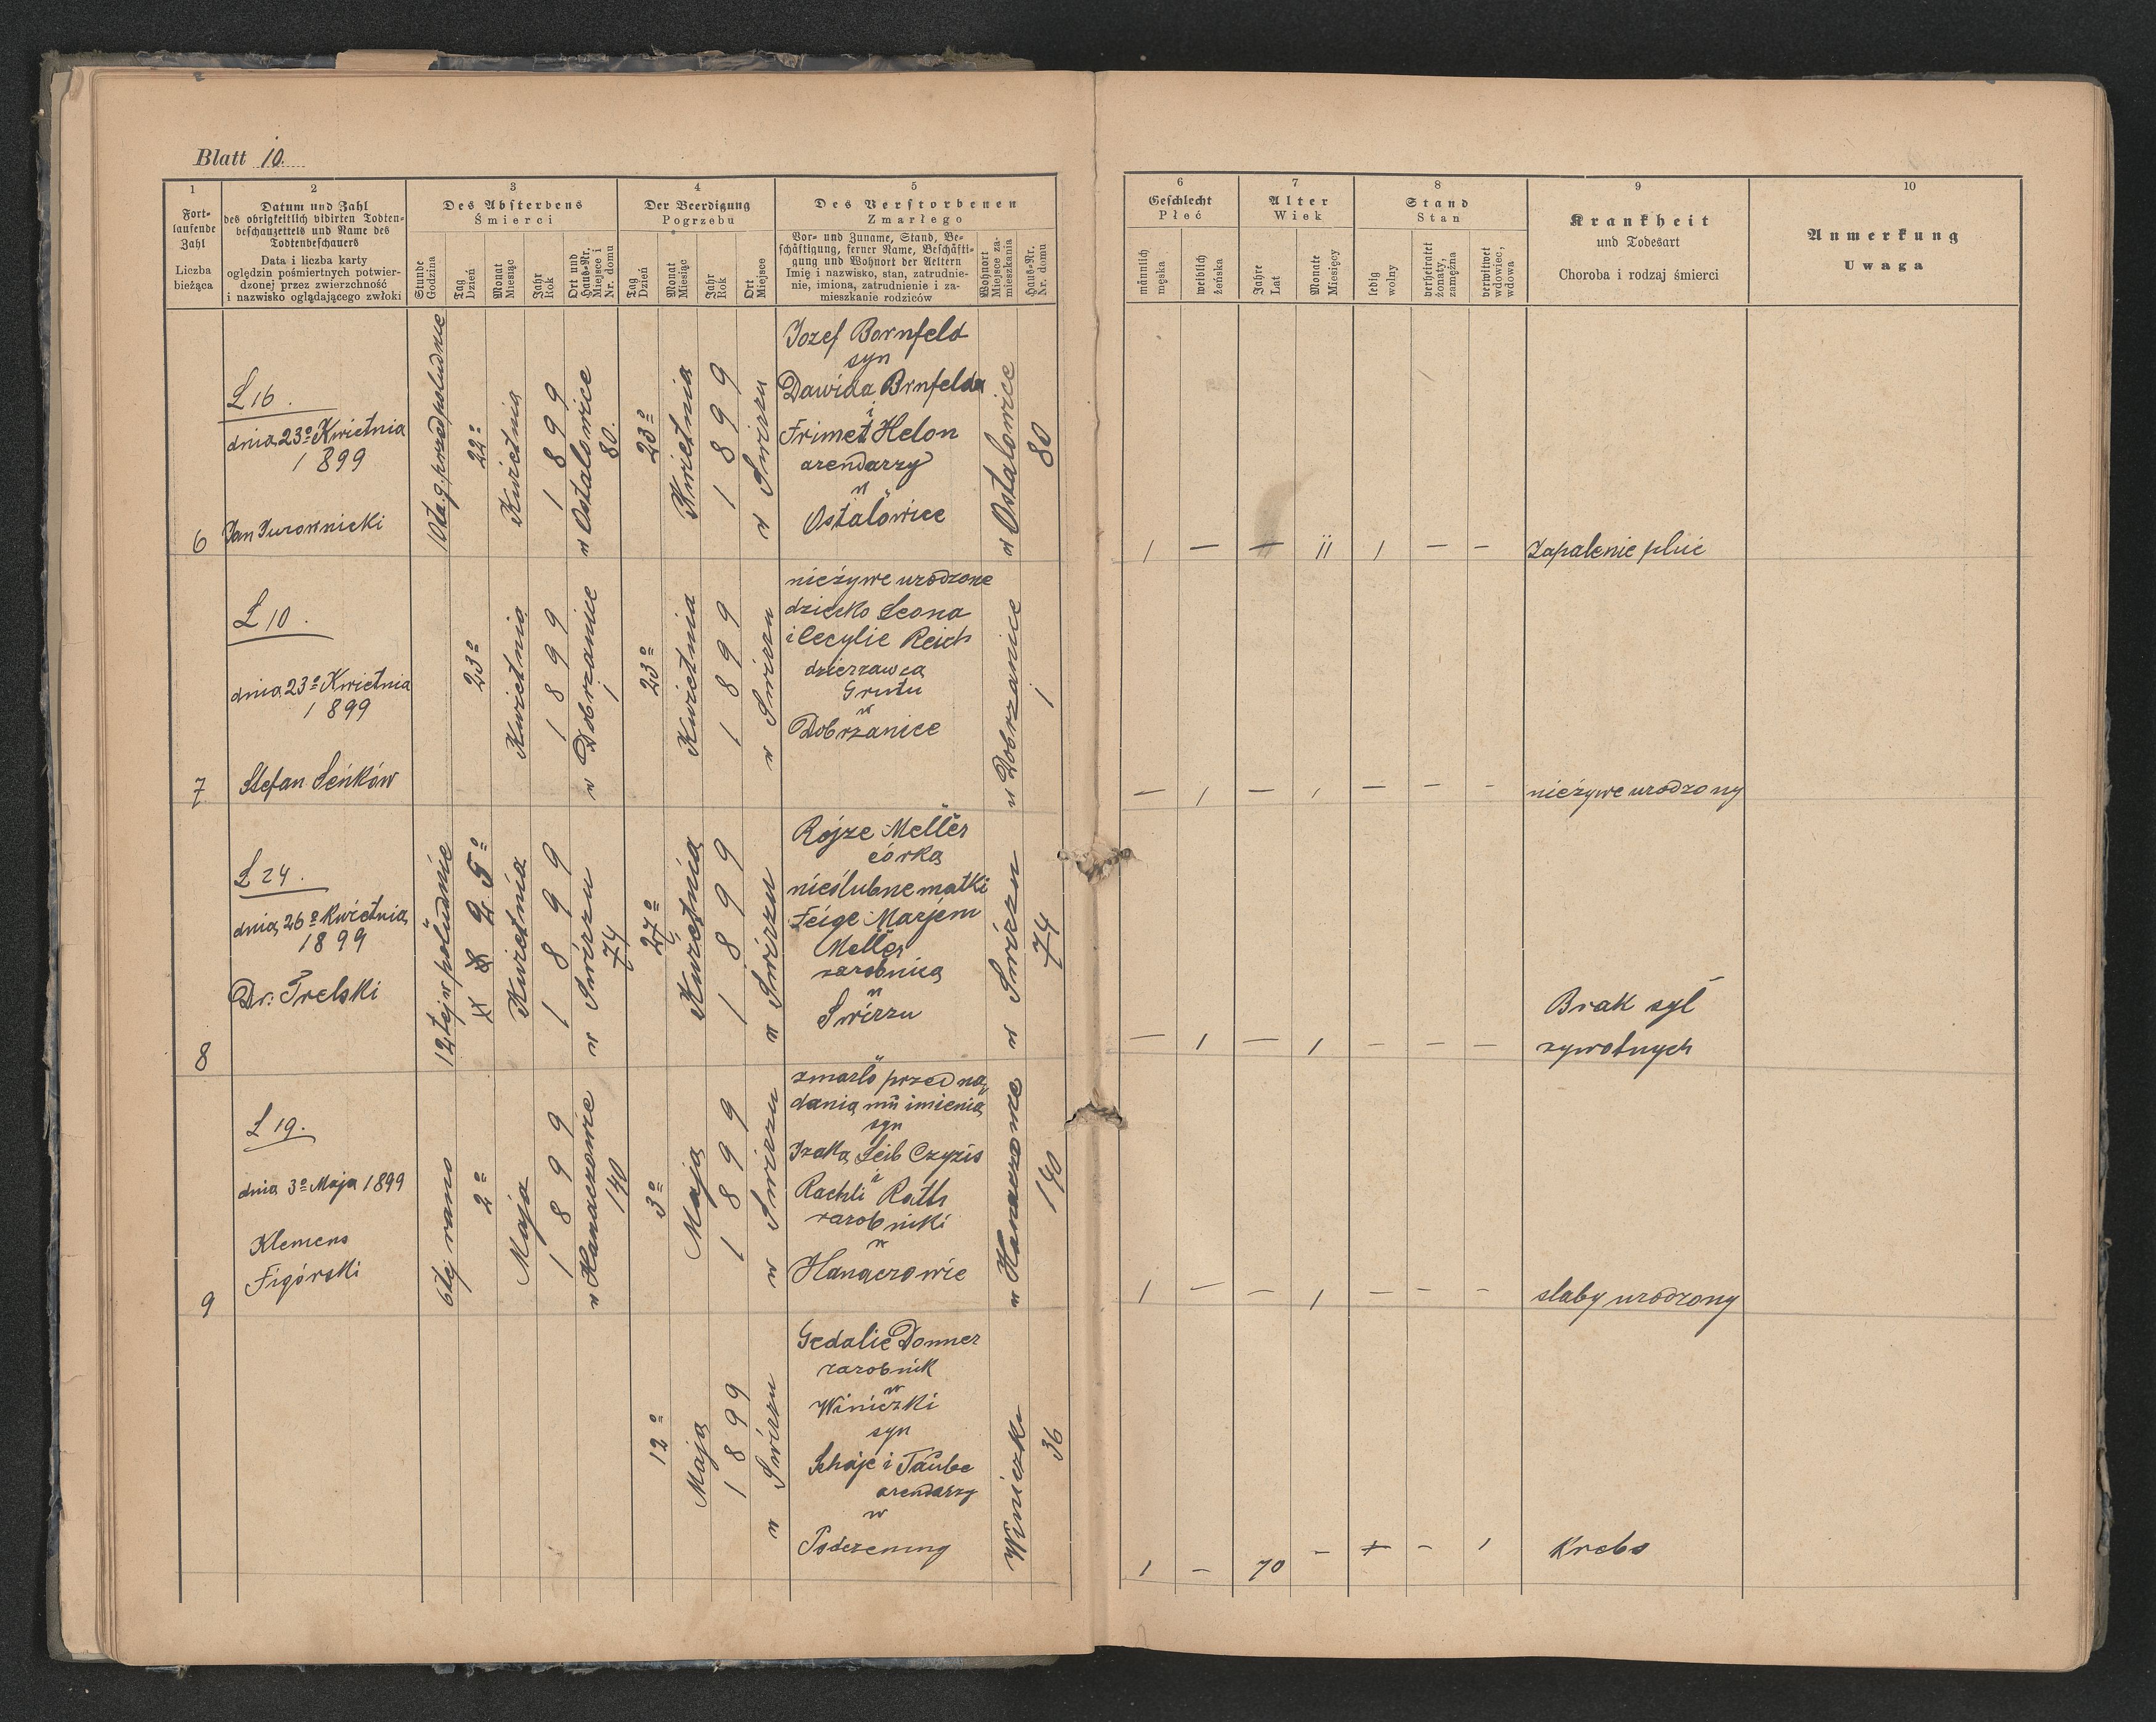 Blatt 10.
1
Fort-
laufende
Zahl
Liczba
bieżąca
2
Datum und Zahl
des obrigkeitlich vidirten Todten-
beschauzettels und Name des
Todtenbeschauers
Data i liczba karty
oględzin pośmiertnych potwier-
dzonej przez zwierzchność
i nazwisko oglądającego zwłoki
3
Des Absterbens
Śmierci
Stunde
Godzina
Tag
Dzień
Monat
Miesiąc
Jahr
Rok
Ort und
Haus-Nr.
Miejsce i
Nr. domu
4
Der Beerdigung
Pogrzebu
Tag
Dzień
Monat
Miesiąc
Jahr
Rok
Ort
Miejsce
5
Des Verstorbenen
Zmarłego
Vor- und Zuname, Stand, Be-
schäftigung, ferner Name, Beschäfti-
gung und Wohnort der Aeltern
Imię i nazwisko, stan, zatrudnie-
nie, imiona, zatrudnienie i za-
mieszkanie rodziców
Wohnort
Miejsce za-
mieszkania
Haus-Nr.
Nr. domu
6
Geschlecht
Płeć
männlich
męska
weiblich
żeńska
7
Alter
Wiek
Jahre
Lat
Monate
Miesięcy
8
Stand
Stan
ledig
wolny
verheiratet
żonaty,
zamężna
verwitwet
wdowiec,
wdowa
9
Krankheit
und Todesart
Choroba i rodzaj śmierci
10
Anmerkung
Uwaga
6
L 16.
dnia 23º Kwietnia
1899
Jan Jurownicki
10ta g. przed poludnie
22º
Kwietnia
1899
w Ostalowice
80.
23º
Kwietnia
1899
w Swirzu
Jozef Bornfeld
syn
Dawida Brnfelda
i
Frimet Helon
arendarzy
w
Ostalowice
w Ostalowice
80
1 — — 11 1 — —
Zapalenie pluć
7
L 10.
dnia 23º Kwietnia
1899
Stefan Seńków
23º
Kwietnia
1899
w Dobrzanice
1
23º
Kwietnia
1899
w Swirzu
nieżywe urodzone
dziecko Leona
i Cecylie Reich
dzierzawca
Gruntu
w
Dobrzanice
w Dobrzanice
1
— 1 — 1 — — —
nieżywe urodzony
8
L 24.
dnia 26º Kwietnia
1899
Dr. Trelski
12tej w południe
25º
Kwietnia
1899
w Swirzu
74
27º
Kwietnia
1899
w Swirzu
Rojze Meller
córka
nieślubne matki
Feige Marjem
Meller
zarobnica
w
Swirzu
w Swirzu
74
— 1 — 1 — — —
Brak sył
zywotnych
9
L 19.
dnia 3º Maja 1899
Klemens
Figórski
6tej rano
2º
Maja
1899
w Hanaczowie
140
3º
Maja
1899
w Swirzu
zmarło przed na-
dania mu imienia
syn
Izaka Leib Czyzis
i
Rachli Rath
zarobniki
w
Hanaczowie
w Hanaczowie
140
1 — — 1 — — —
slaby urodzony
12º
Maja
1899
w Swirzu
Gedalie Donner
zarobnik
w
Winiczki
syn
Schaje i Taube
arendarzy
w
Winiczki
36
1 — 70 — — 1
Krebs